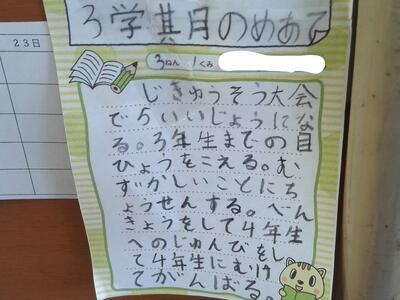 23日
3学期月のめあて
3ねん 1くみ
じきゅうそう大会
で5いいじょうにな
る。3年生までの自
ひょうをこえる。む
ずかしいことにち
ょうせんする。べん
きょうをして4年生
へのじゅんびをし
て4年生にむけ
てがんばる。